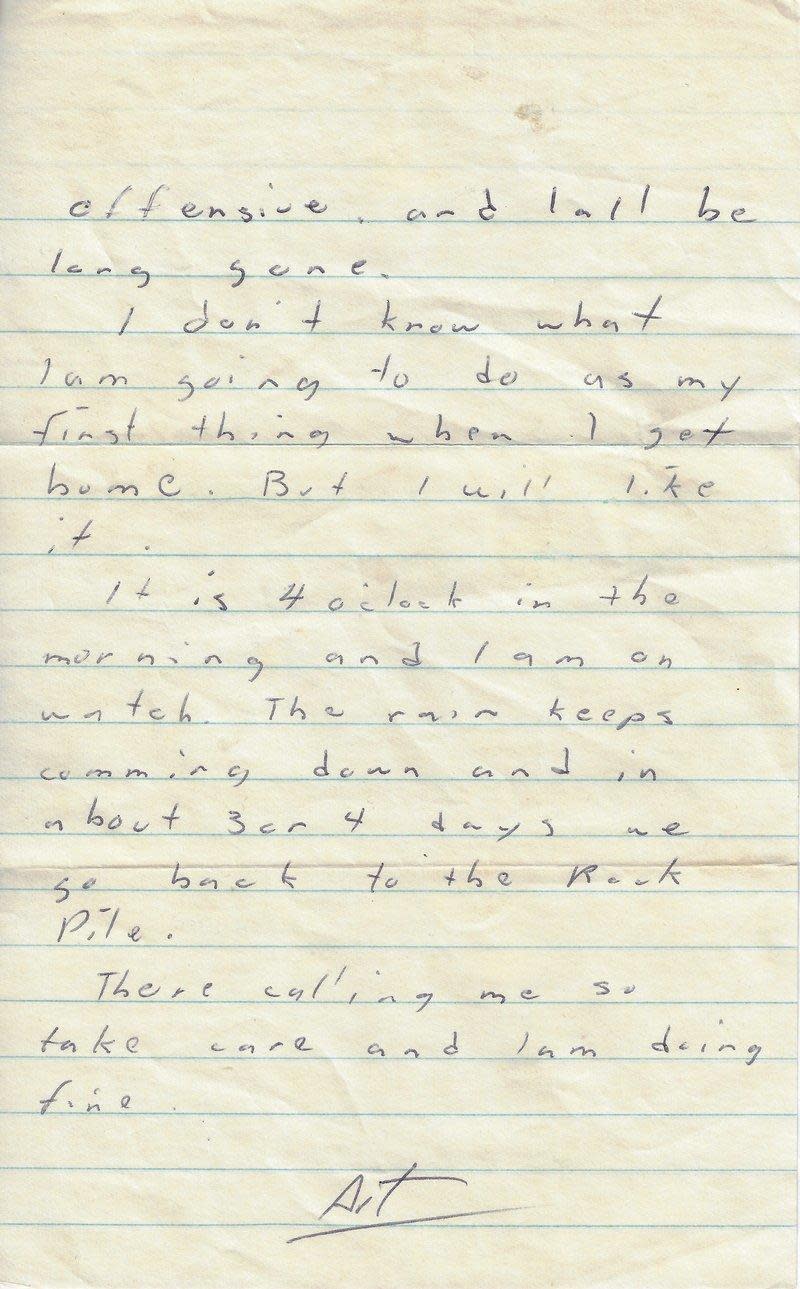 offensive. and Iall be
long gone.
I don't know what
I am going to do as my
first thing when I get
home. But I will like
it.
It is 4 o'clock in the
morning and I am on
watch. The rain keeps
comming down and in
about 3 or 4 days we
go back to the Rock
Pile.
There calling me so
take care and I am doing
fine.
Art